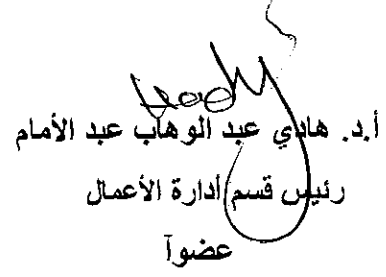 أ.د. هادي عبد الوهاب عبد الأمام
رئيس قسم أدارة الأعمال
عضوآ